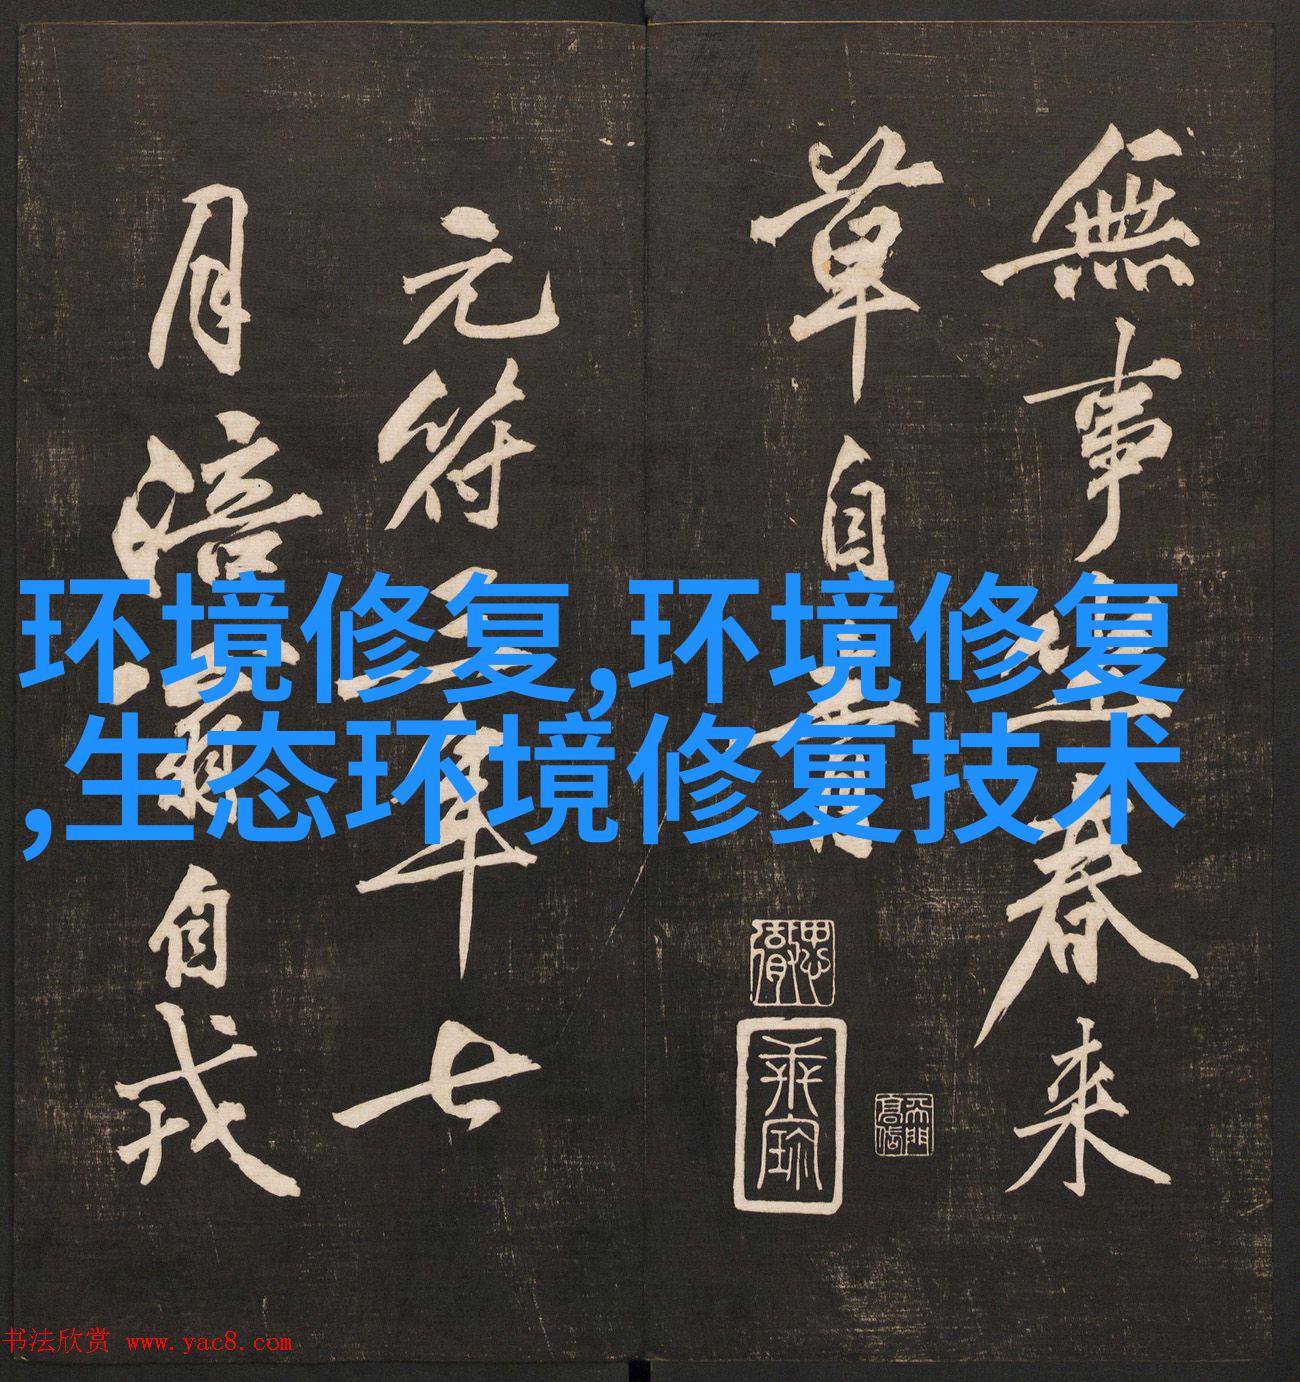 環境修复,环境修复
,生态环境修复技术
無事坐春来
草自青
元符三年七
月涪翁自戎
书法欣赏 www.yac8.com